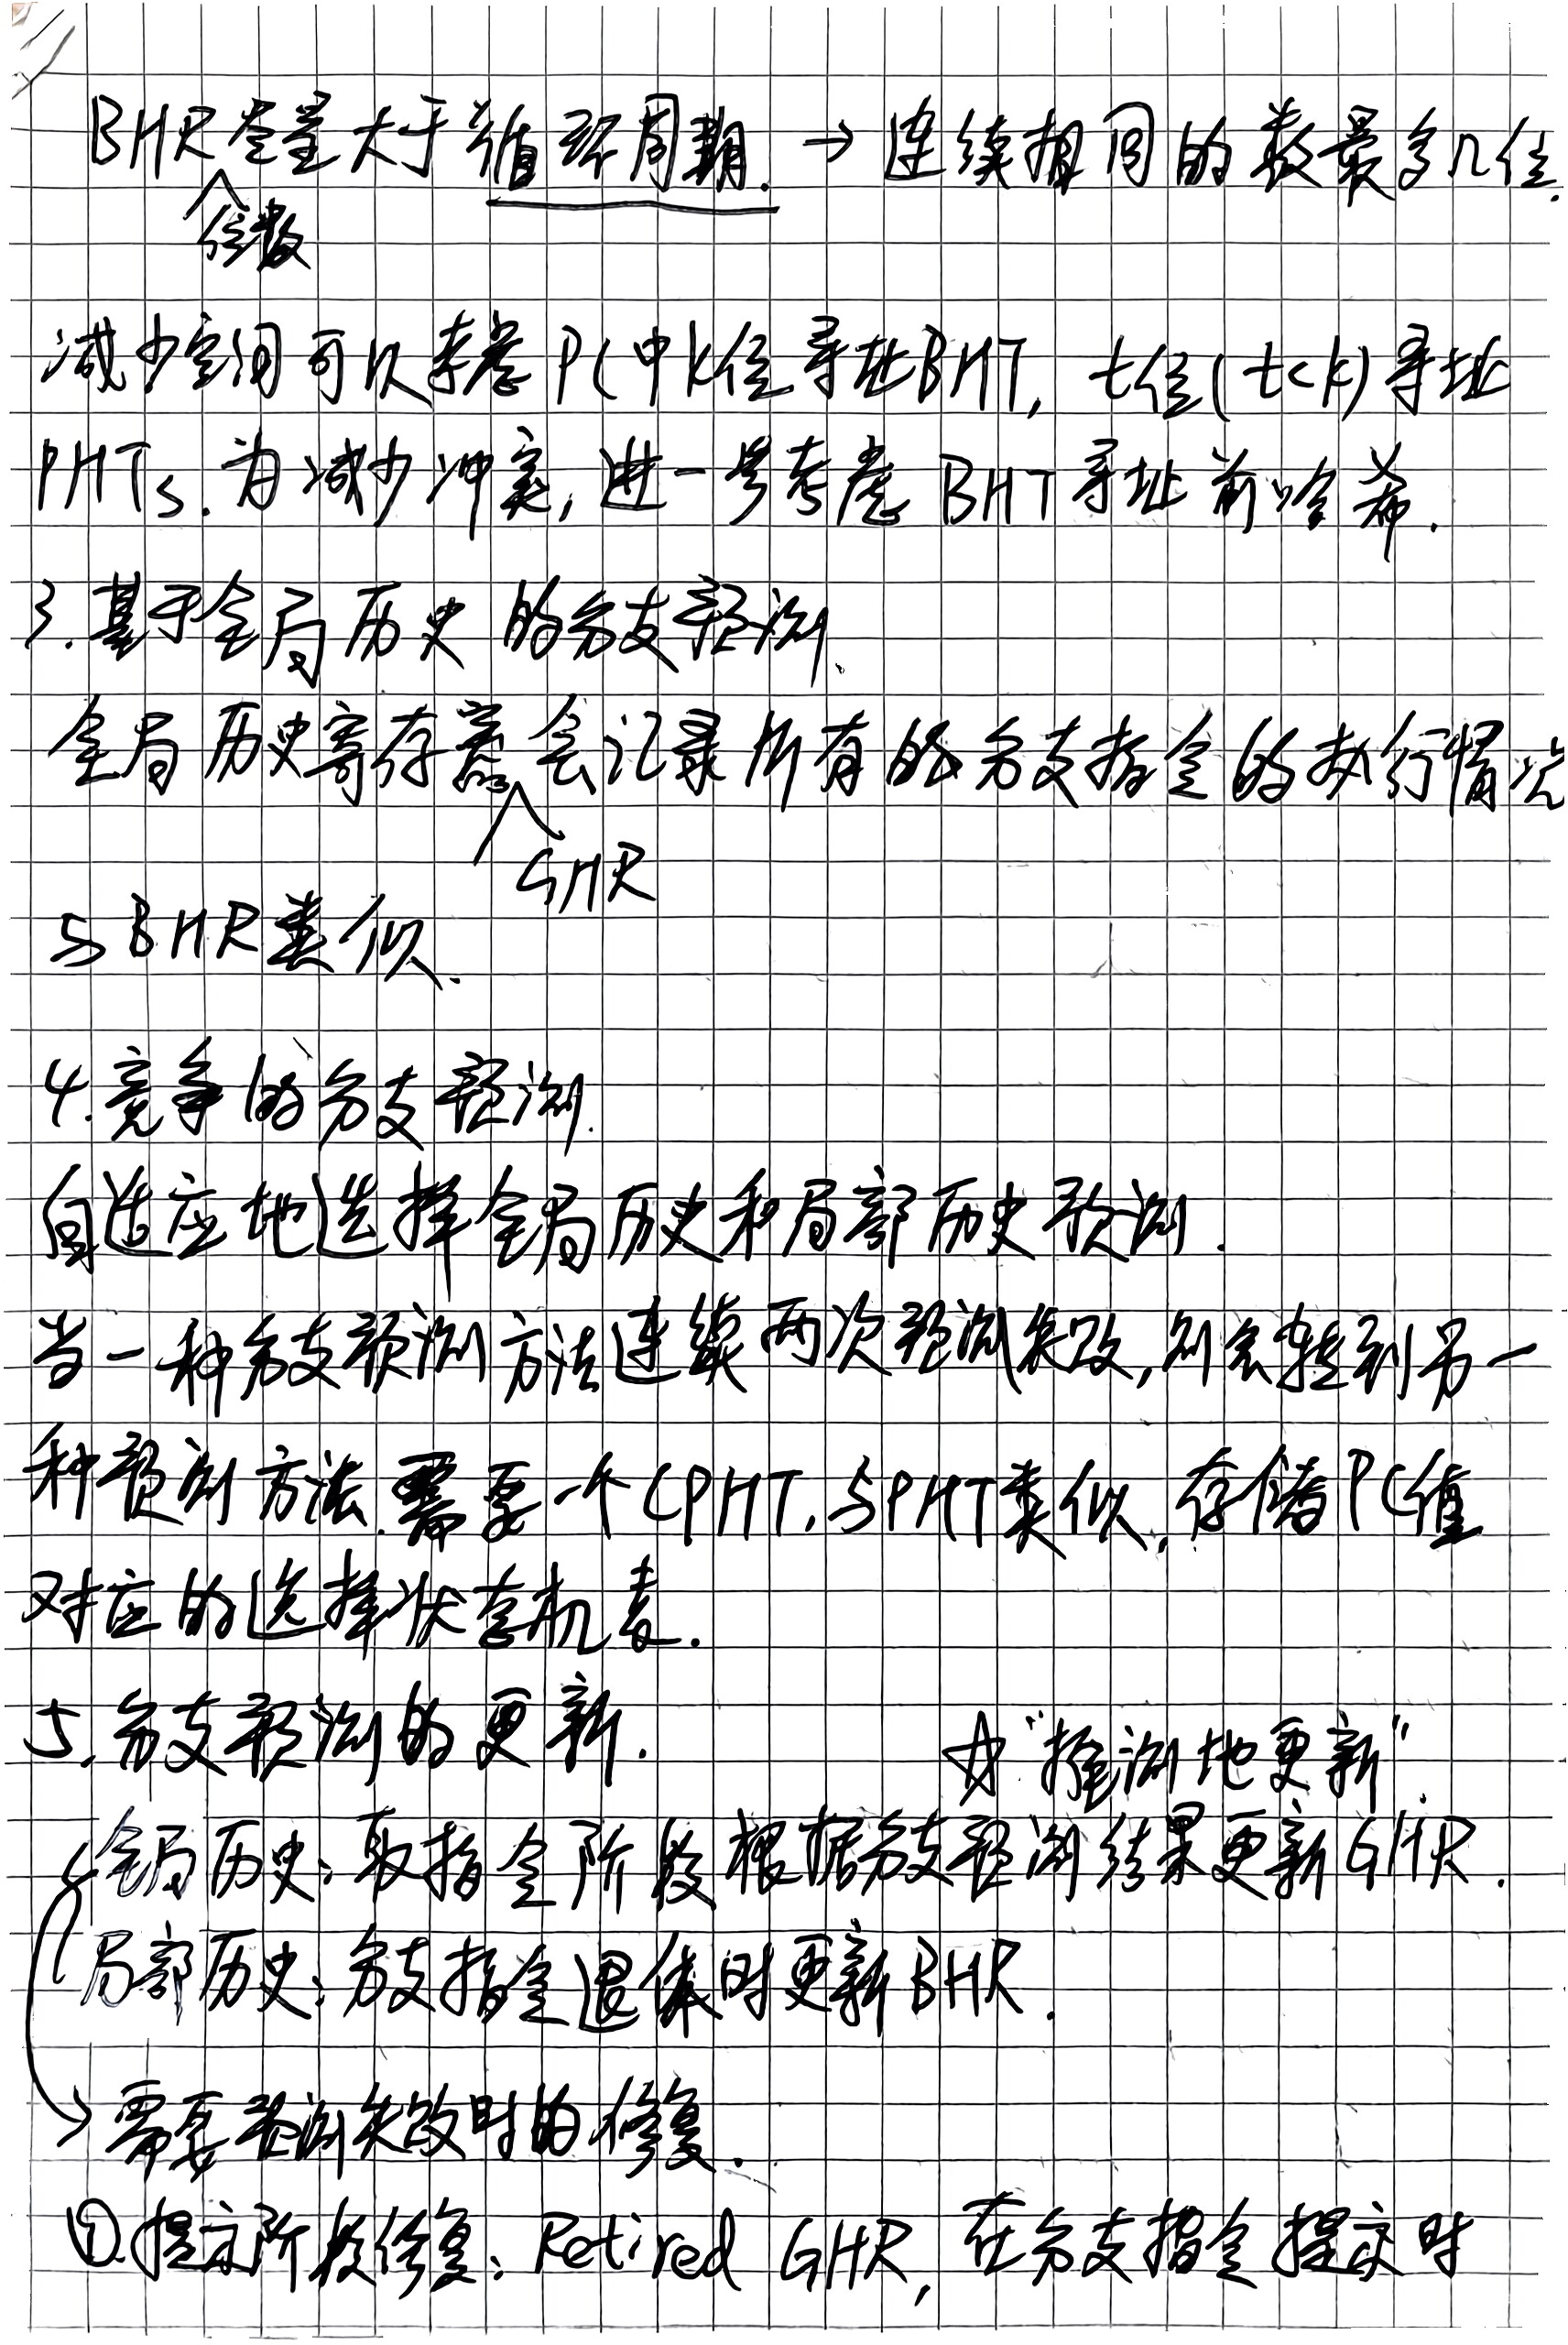 BHR容量大于循环周期. → 连续相同的数最多几位.
位数
减少空间可以考虑PC中k位寻址BHT, t位(t<k)寻址
PHTs. 为减少冲突, 进一步考虑BHT寻址前哈希.
3. 基于全局历史的分支预测.
全局历史寄存器会记录所有的分支指令的执行情况
GHR
与BHR类似.
4. 竞争的分支预测.
自适应地选择全局历史和局部历史预测.
当一种分支预测方法连续两次预测失败, 则会转到另一
种预测方法. 需要一个CPHT, 与PHT类似, 存储PC值
对应的选择状态机表.
5. 分支预测的更新.
☆"推测地更新".
全局历史: 取指令阶段根据分支预测结果更新GHR.
局部历史: 分支指令退休时更新BHR.
→ 需要预测失败时的修复.
① 提交阶段修复: Retired GHR, 在分支指令提交时